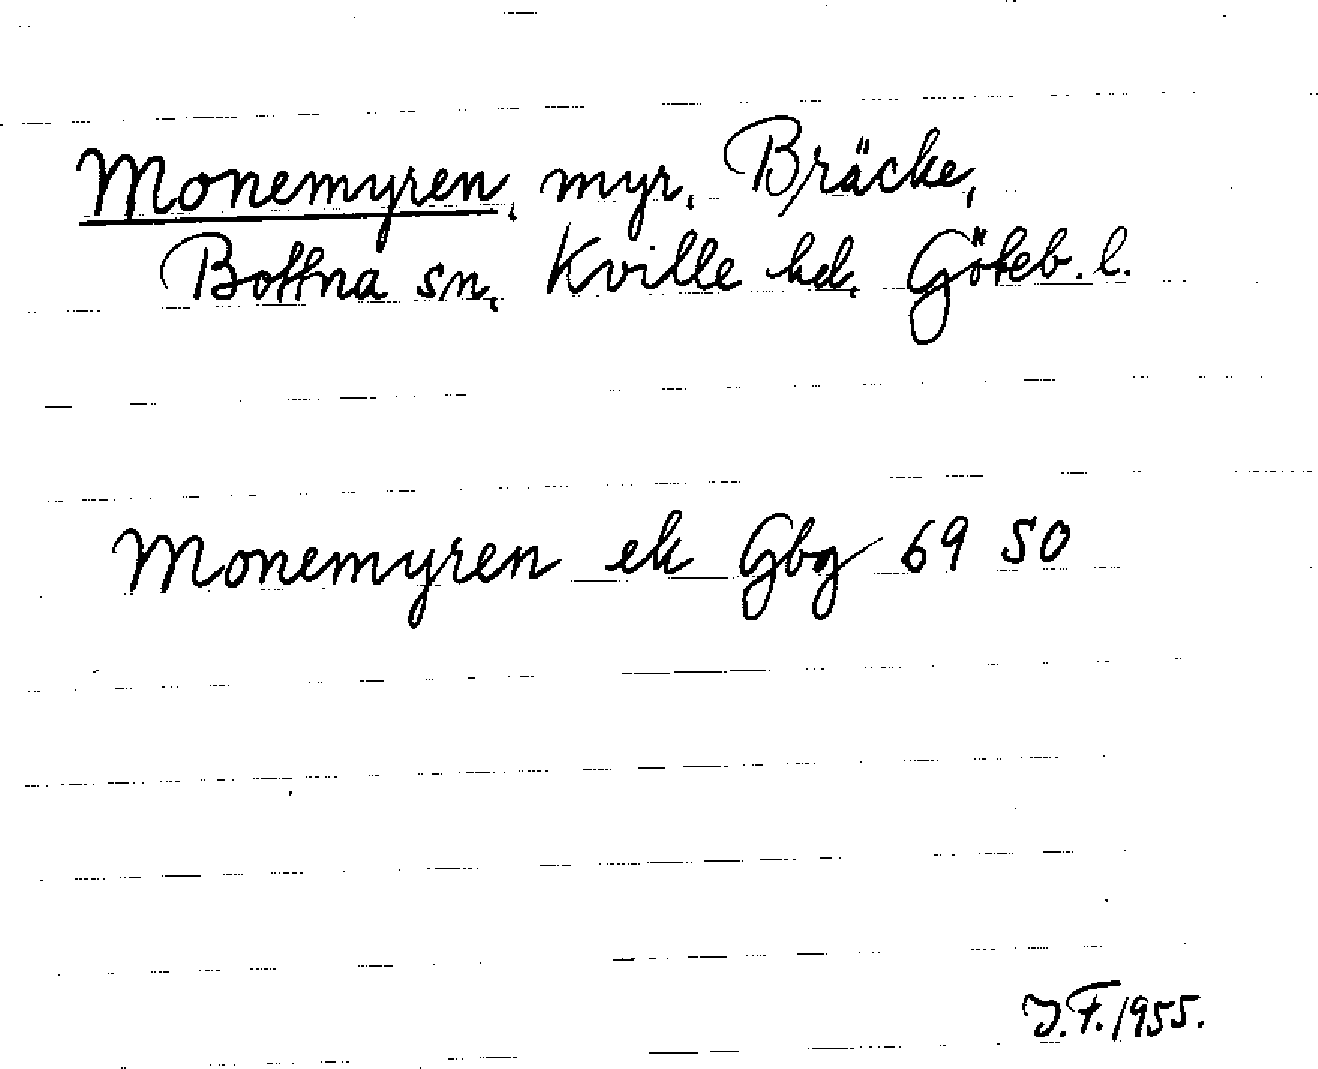 Monemyren, myr, Bräcke,
Bottna sn, Kville hd, Göteb. l.
Monemyren ek Gbg 69 50
J.F. 1955.